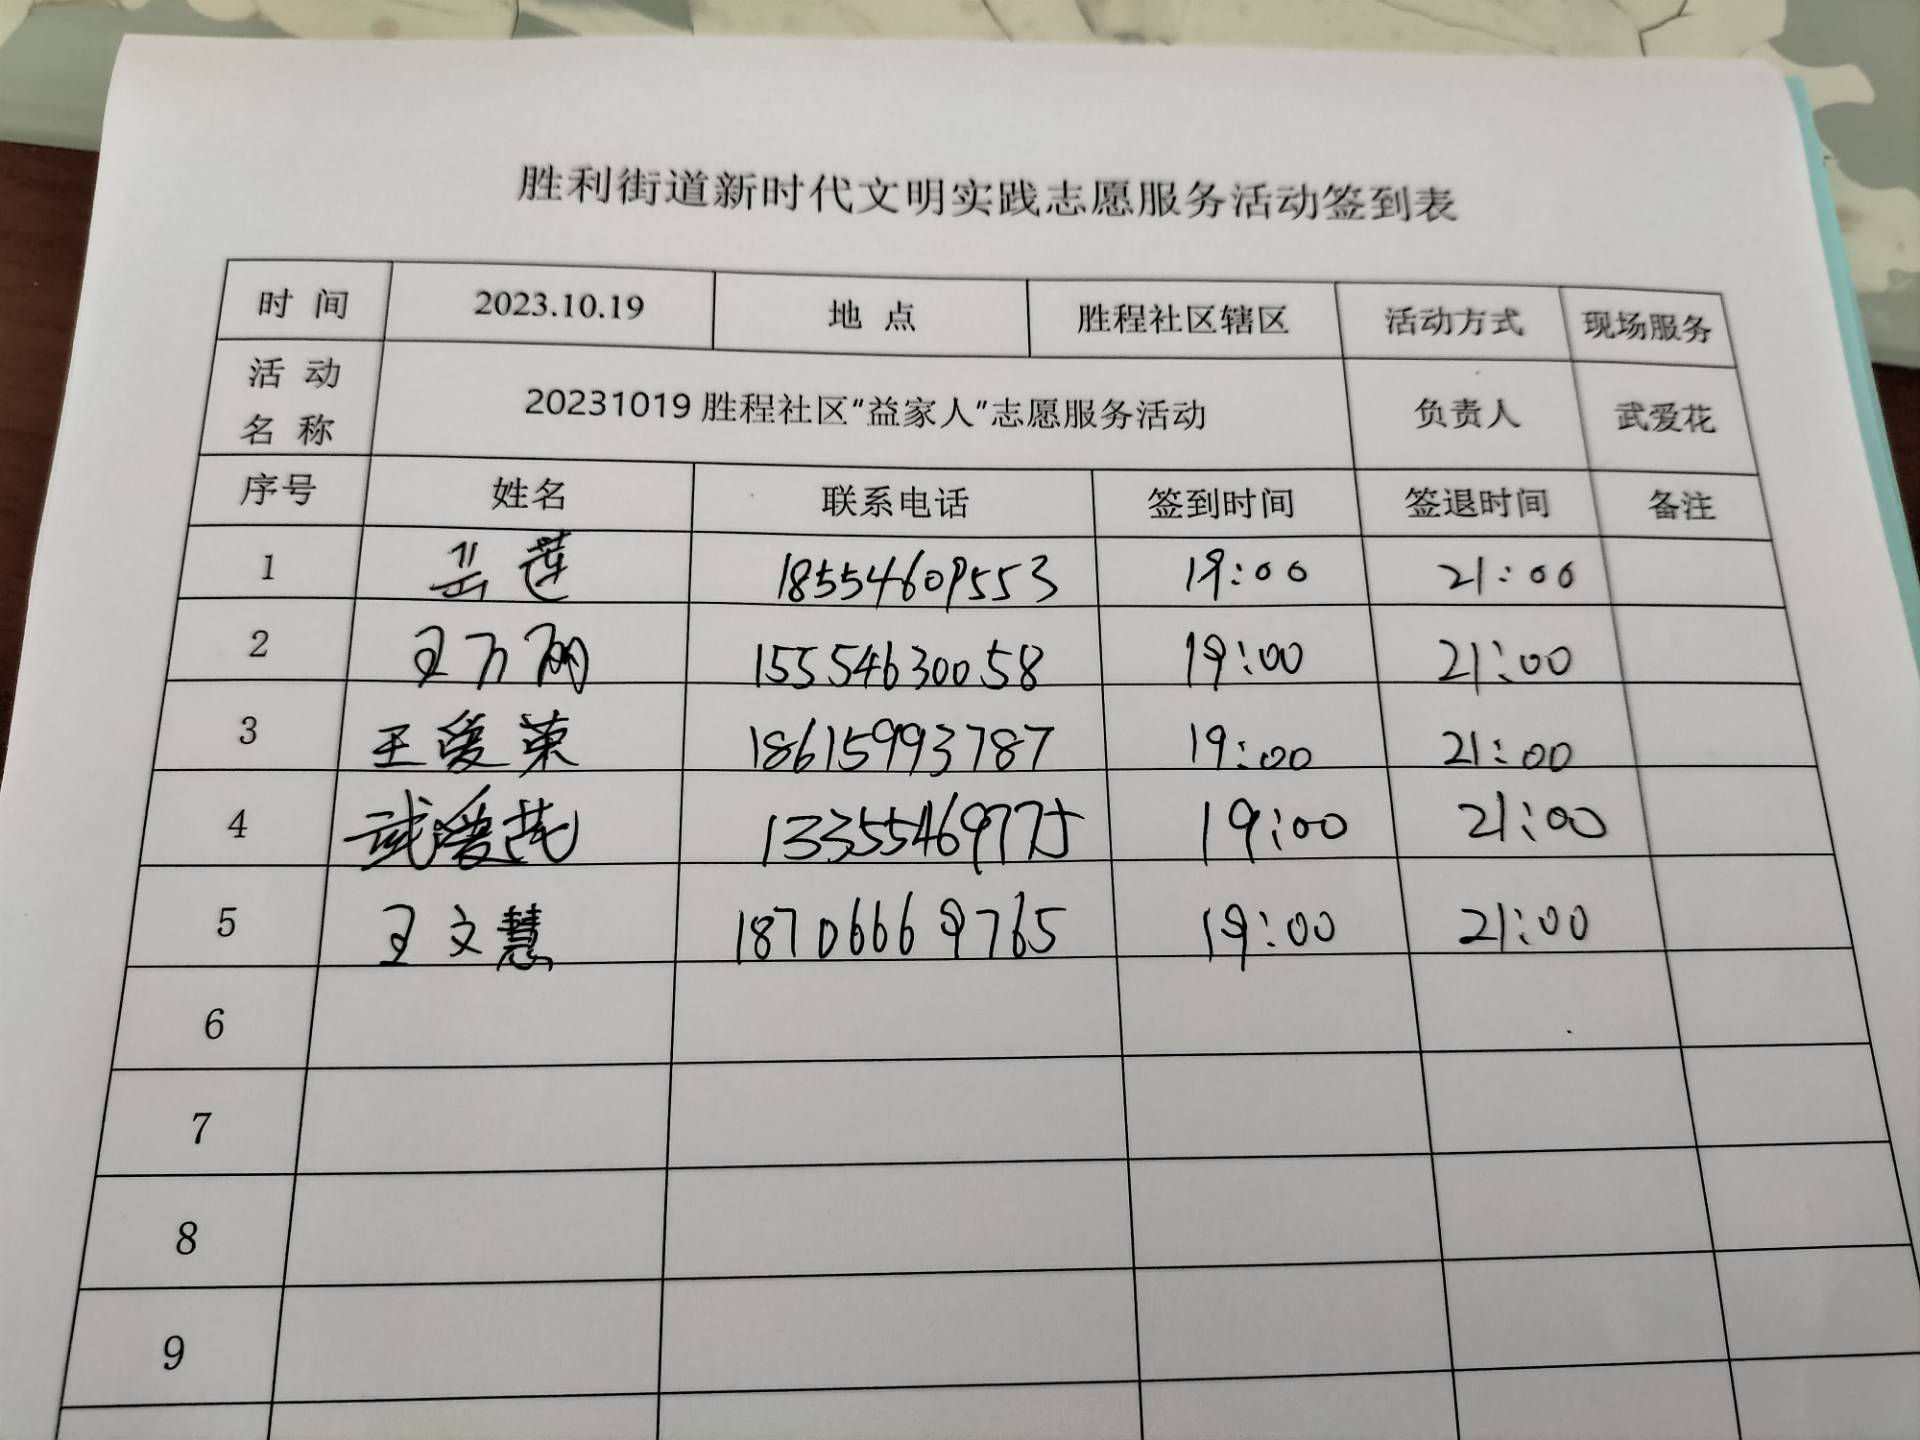 胜利街道新时代文明实践志愿服务活动签到表
时 间 2023.10.19 地 点 胜程社区辖区 活动方式 现场服务
活 动
名 称 20231019 胜程社区“益家人”志愿服务活动 负责人 武爱花
序号 姓名 联系电话 签到时间 签退时间 备注
1 莲 18554609553 19:00 21:00
2 王万 15554630058 19:00 21:00
3 王爱荣 18615993787 19:00 21:00
4 武爱花 13355469775 19:00 21:00
5 王文慧 18706669765 19:00 21:00
6
7
8
9